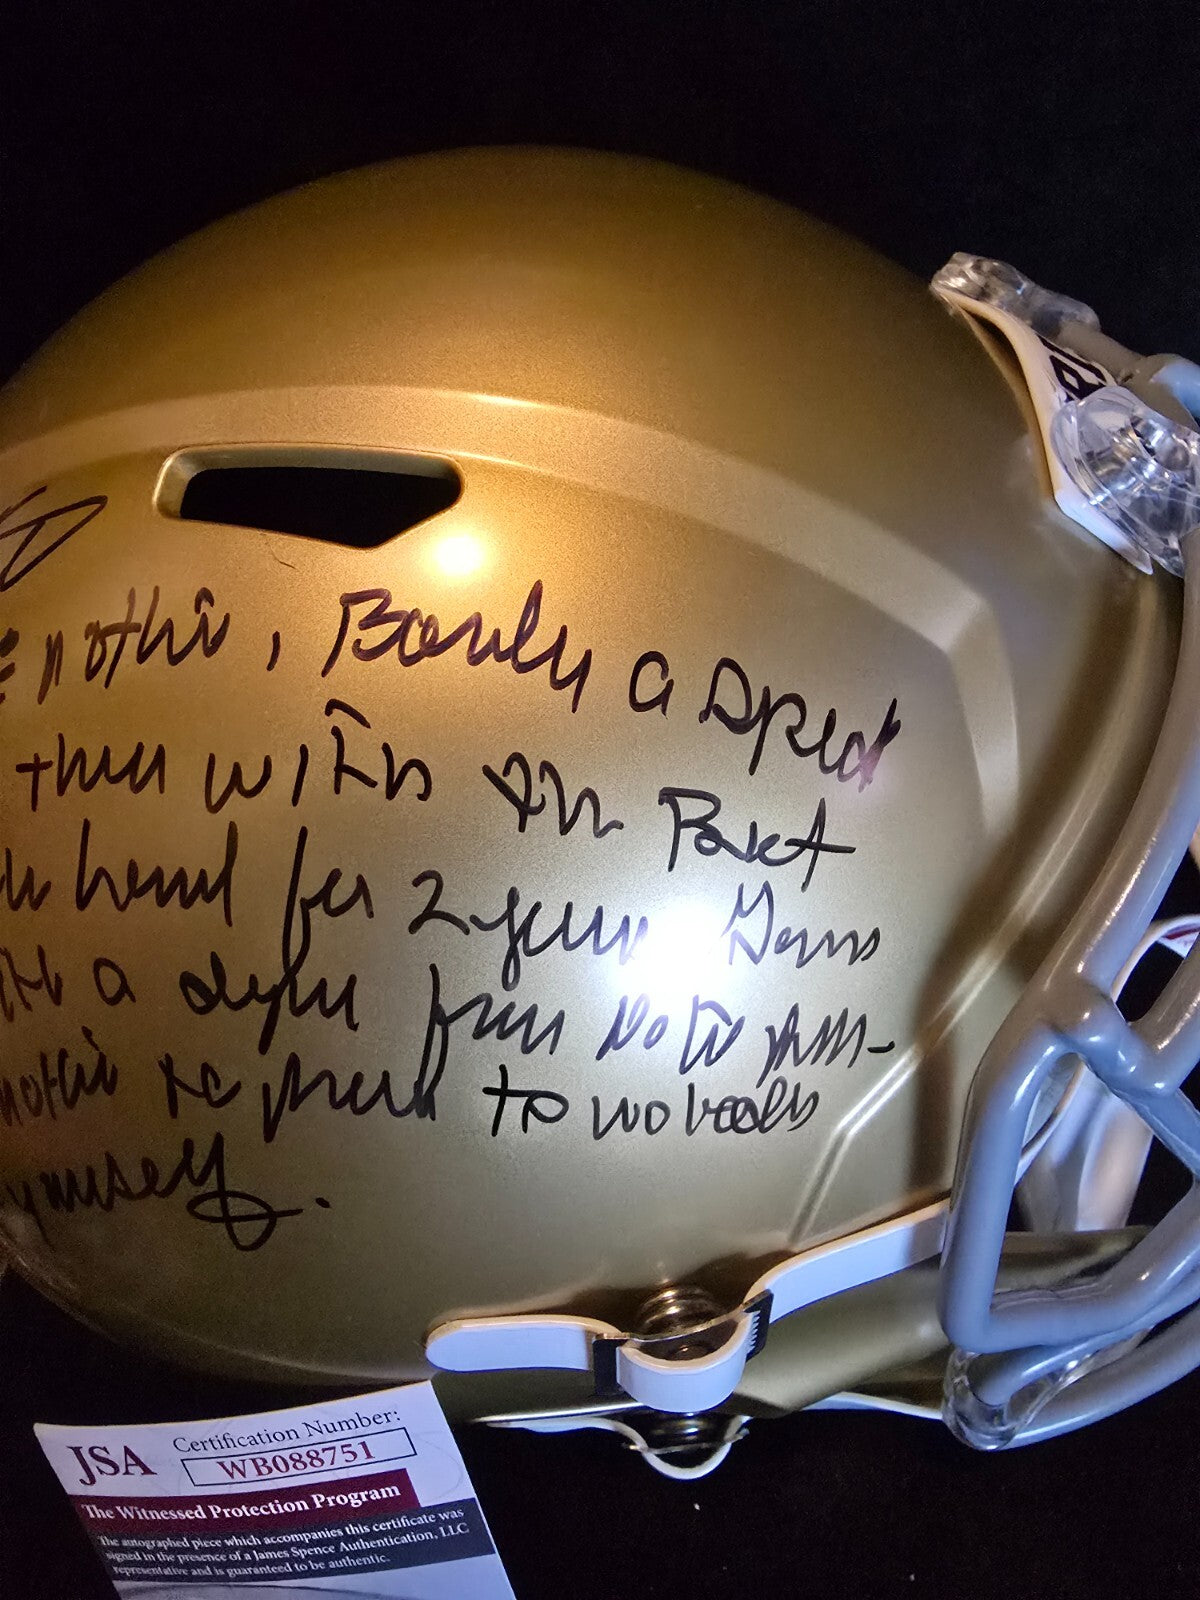 nothin, Barely a speck
there with the Best
land for 2 years Gonna
a degree from Notre Dame-
nothin to prove to nobody
myself.
JSA Certification Number:
WB088751
The Witnessed Protection Program
The autographed piece which accompanies this certificate was
signed in the presence of a James Spence Authentication, LLC
representative and is guaranteed to be authentic.